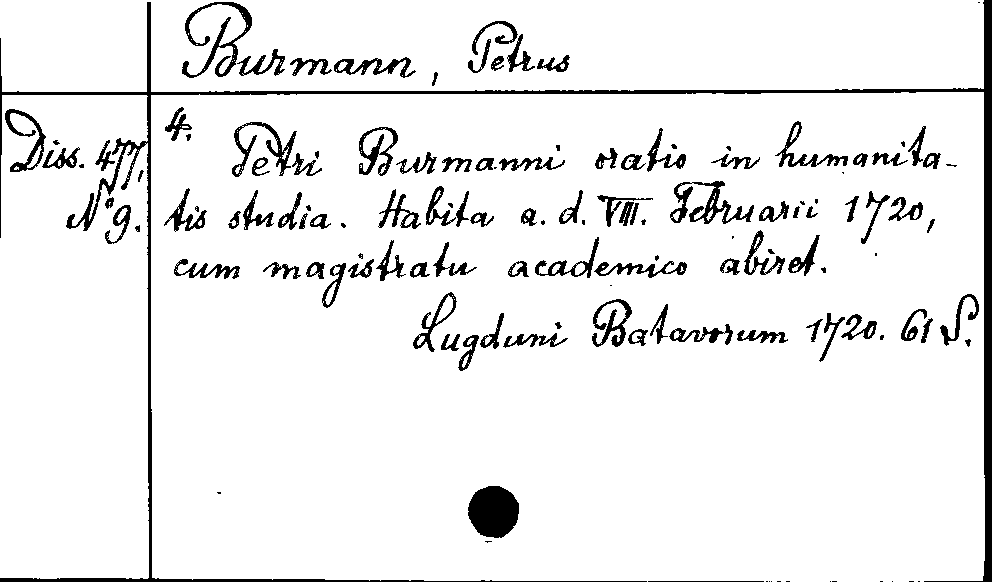 Burmann, Petrus
Diss. 477,
Nº 9.
4.
Petri Burmanni oratio in humanita-
tis studia. Habita a. d. VIII. Februarii 1720,
cum magistratu academico abiret.
Lugduni Batavorum 1720. 61 S.